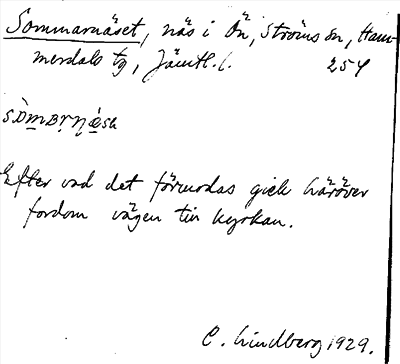 Sommarnäset, näs i Ön, Ströms sn, Ham-
merdals tg, Jämtl. l. 254
Efter vad det förmodas gick häröver
fordom vägen till kyrkan.
C. Lindberg 1929.